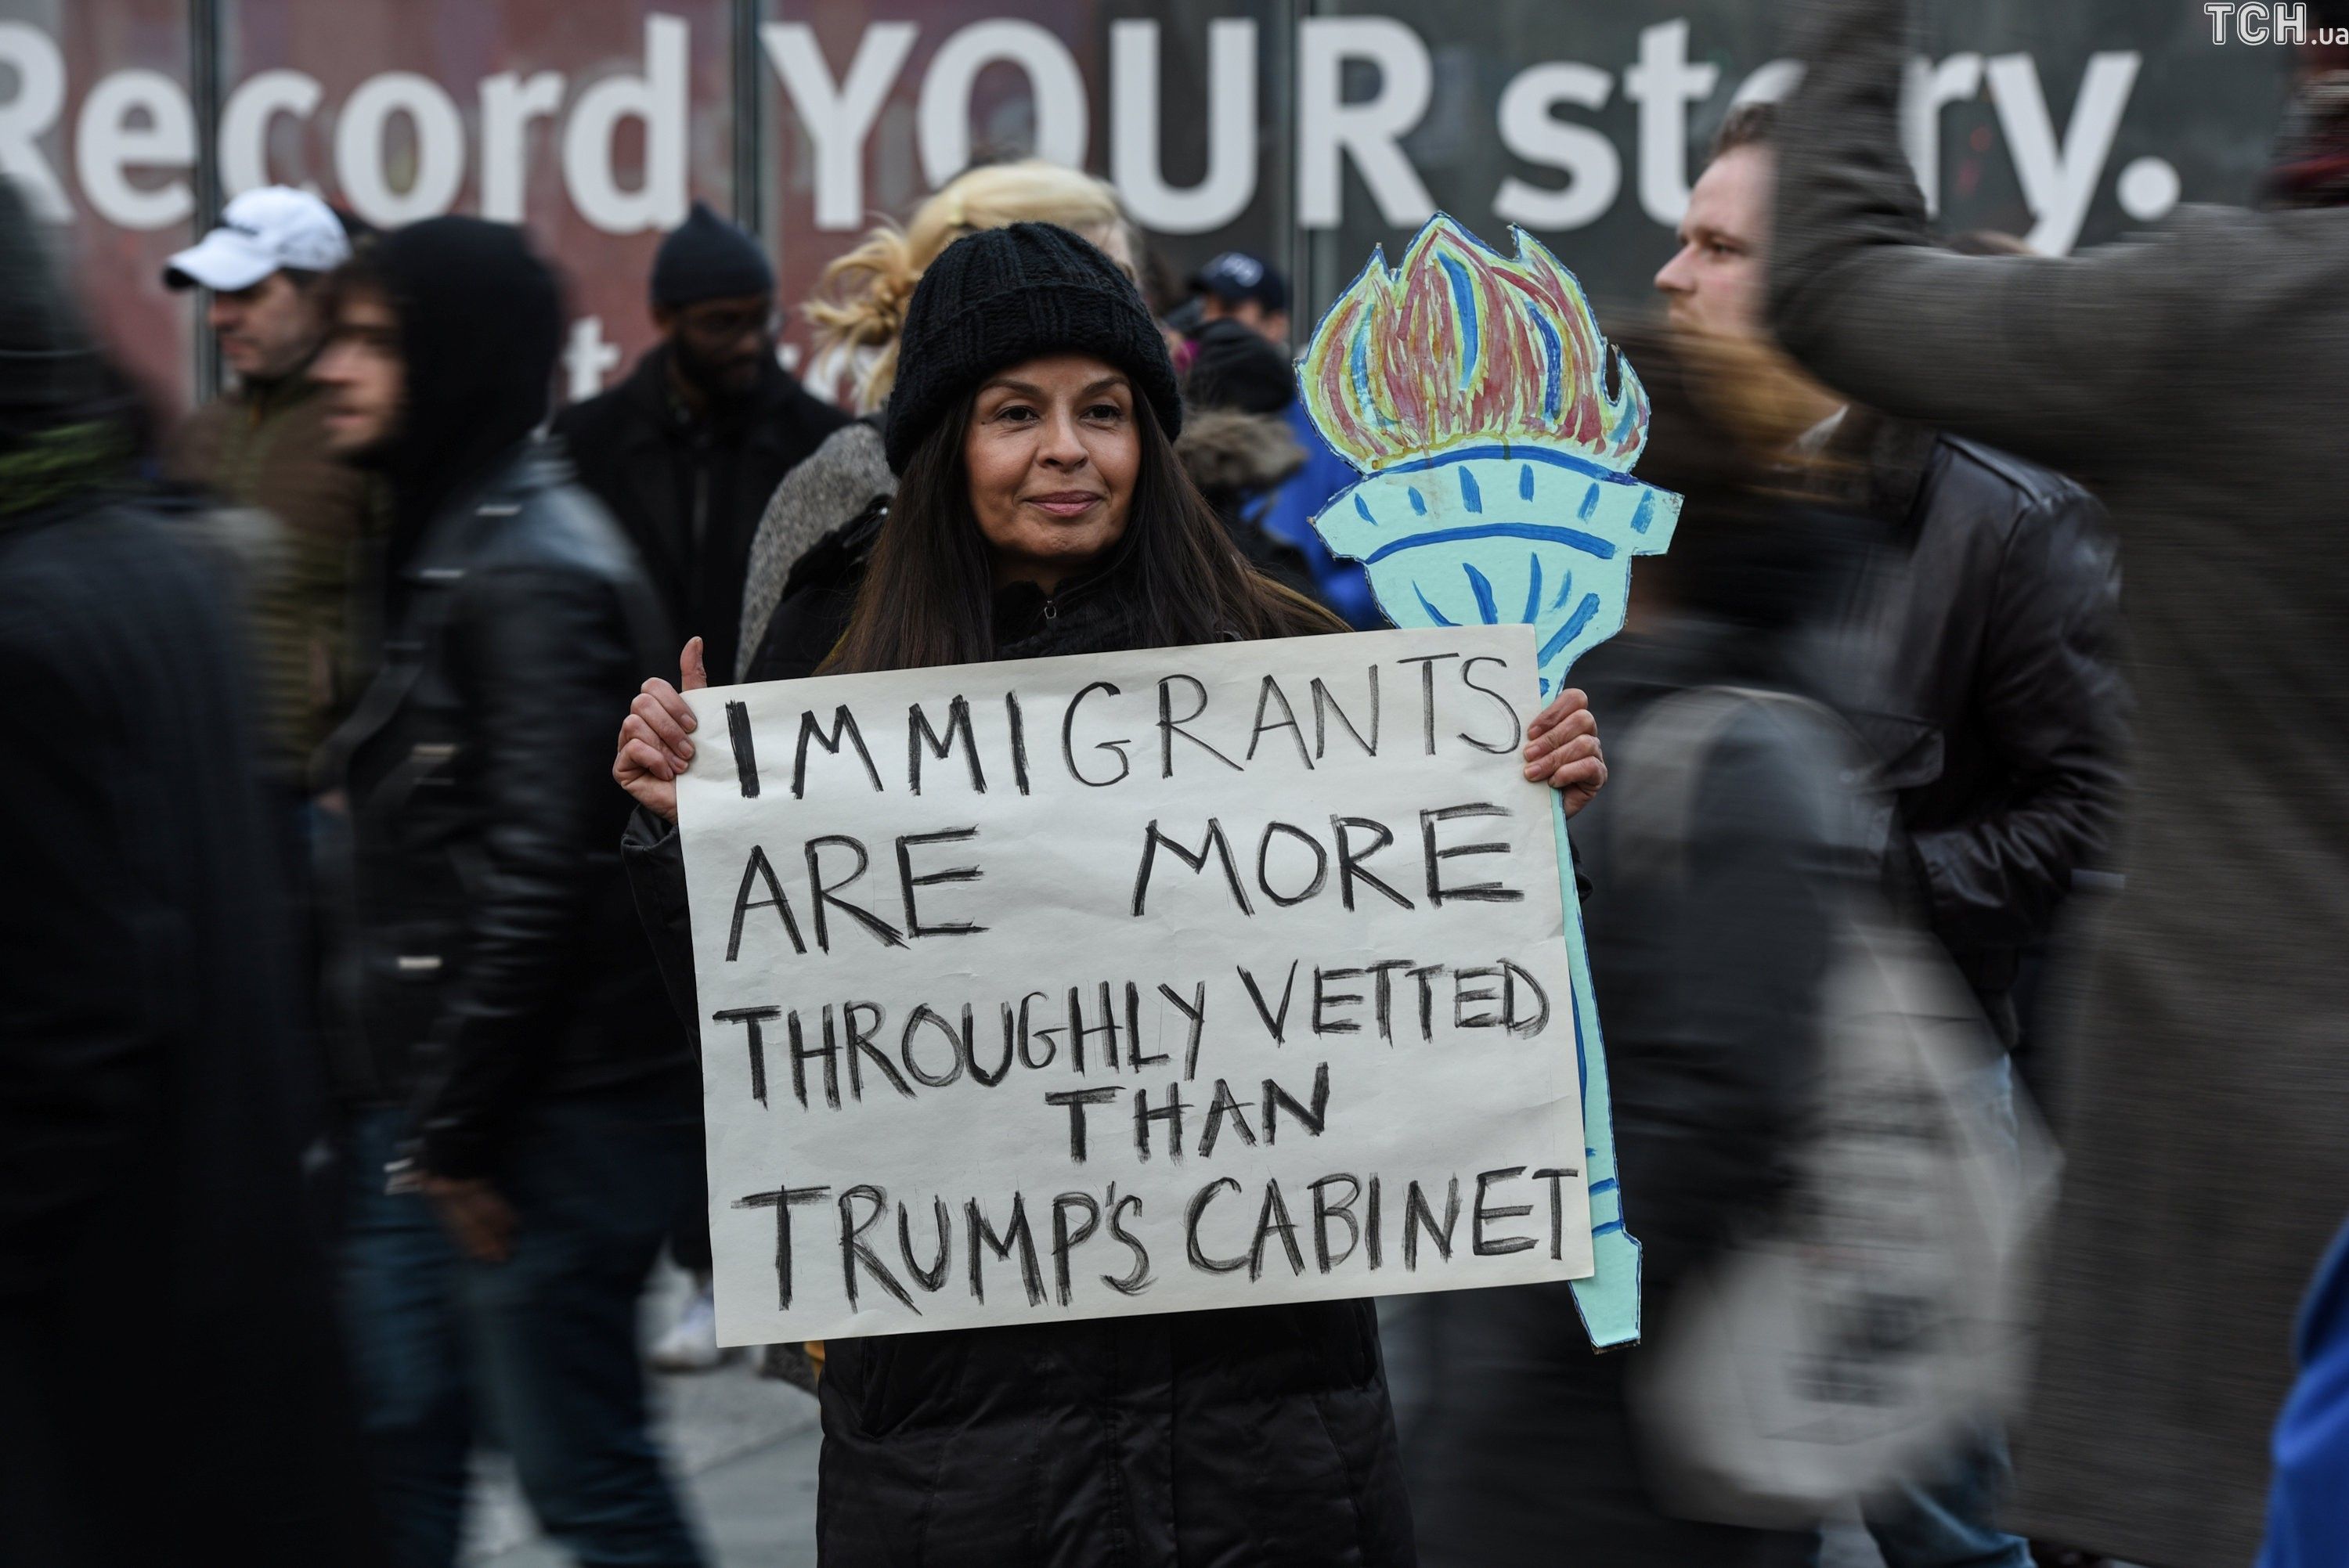 TCH.ua
Record YOUR story.
IMMIGRANTS
ARE MORE
THROUGHLY VETTED
THAN
TRUMP'S CABINET